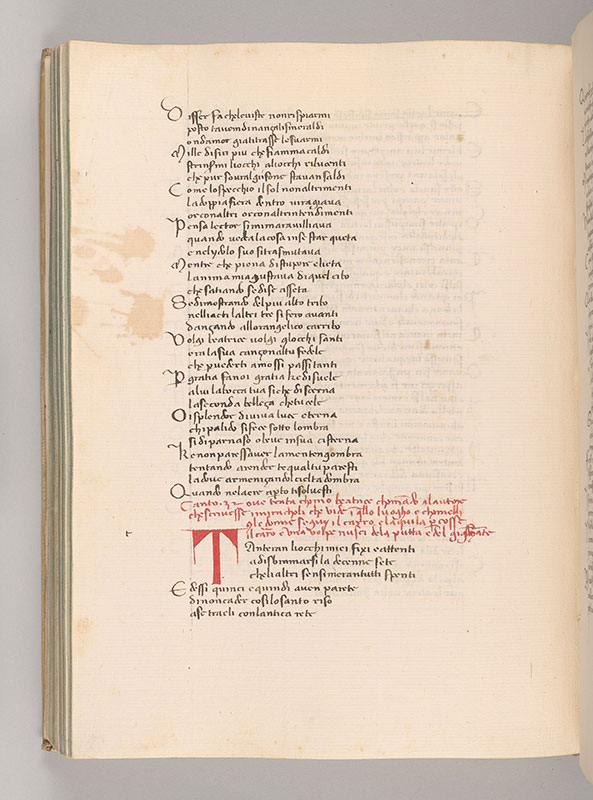 Disser fa che le viste non rispiarmi
posto tavem dinançali smeraldi
ond amor gia ti trasse le su armi
Mille disiri piu che fiamma caldi
strinsermi liocchi aliocchi rilucenti
che pur sovral grifone stavan saldi
Come lo specchio il sol non altrimenti
la doppia fiera dentro vi ragiava
or con altri or con altri intendimenti
Pensa lector si mi maravilliava
quando vedea la cosa in se star queta
e nel ydolo suo si trasmutava
Mentre che piena di stupore e lieta
lanima mia gustava di quel cibo
che satiando se di se asseta
Se dimostrando del piu alto tribo
nelli acti laltre tre si fero avanti
dançando al loro angelico carribo
Volgi beatrice volgi gliocchi santi
era la sua cançon al tu fedele
che per vederti a mossi passi tanti
Per gratia fa noi gratia che disvele
a lui la bocca tua si che discerna
la seconda belleça che tu cele
O isplendor di viva luce eterna
chi palido si fece sotto lombra
si di parnaso o beve in sua cisterna
Ke non paresse aver la mente ngombra
tentando a render te qual tu paresti
la dove armoniçando il ciel tadombra
Quando nelaere aperto ti solvesti
Canto .32. ove tratta chomo beatrice chomando alautore
che scrivesse i miracholi che vide in quello luogho e chomelli
e le donne seguir il carro e laquila percosse
il carro e una volpe nusci dela putta e del gigante
t
Tanteran liocchi miei fixi e attenti
a disbramarsi la decenne sete
che li altri sensi meran tutti spenti
Edessi quinci e quindi avien parete
di non caler cosi lo santo riso
a se traeli con lantica rete